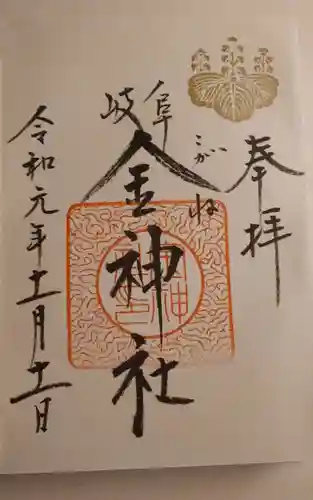 奉拝
岐阜
こがね
金神社
令和元年十一月十一日